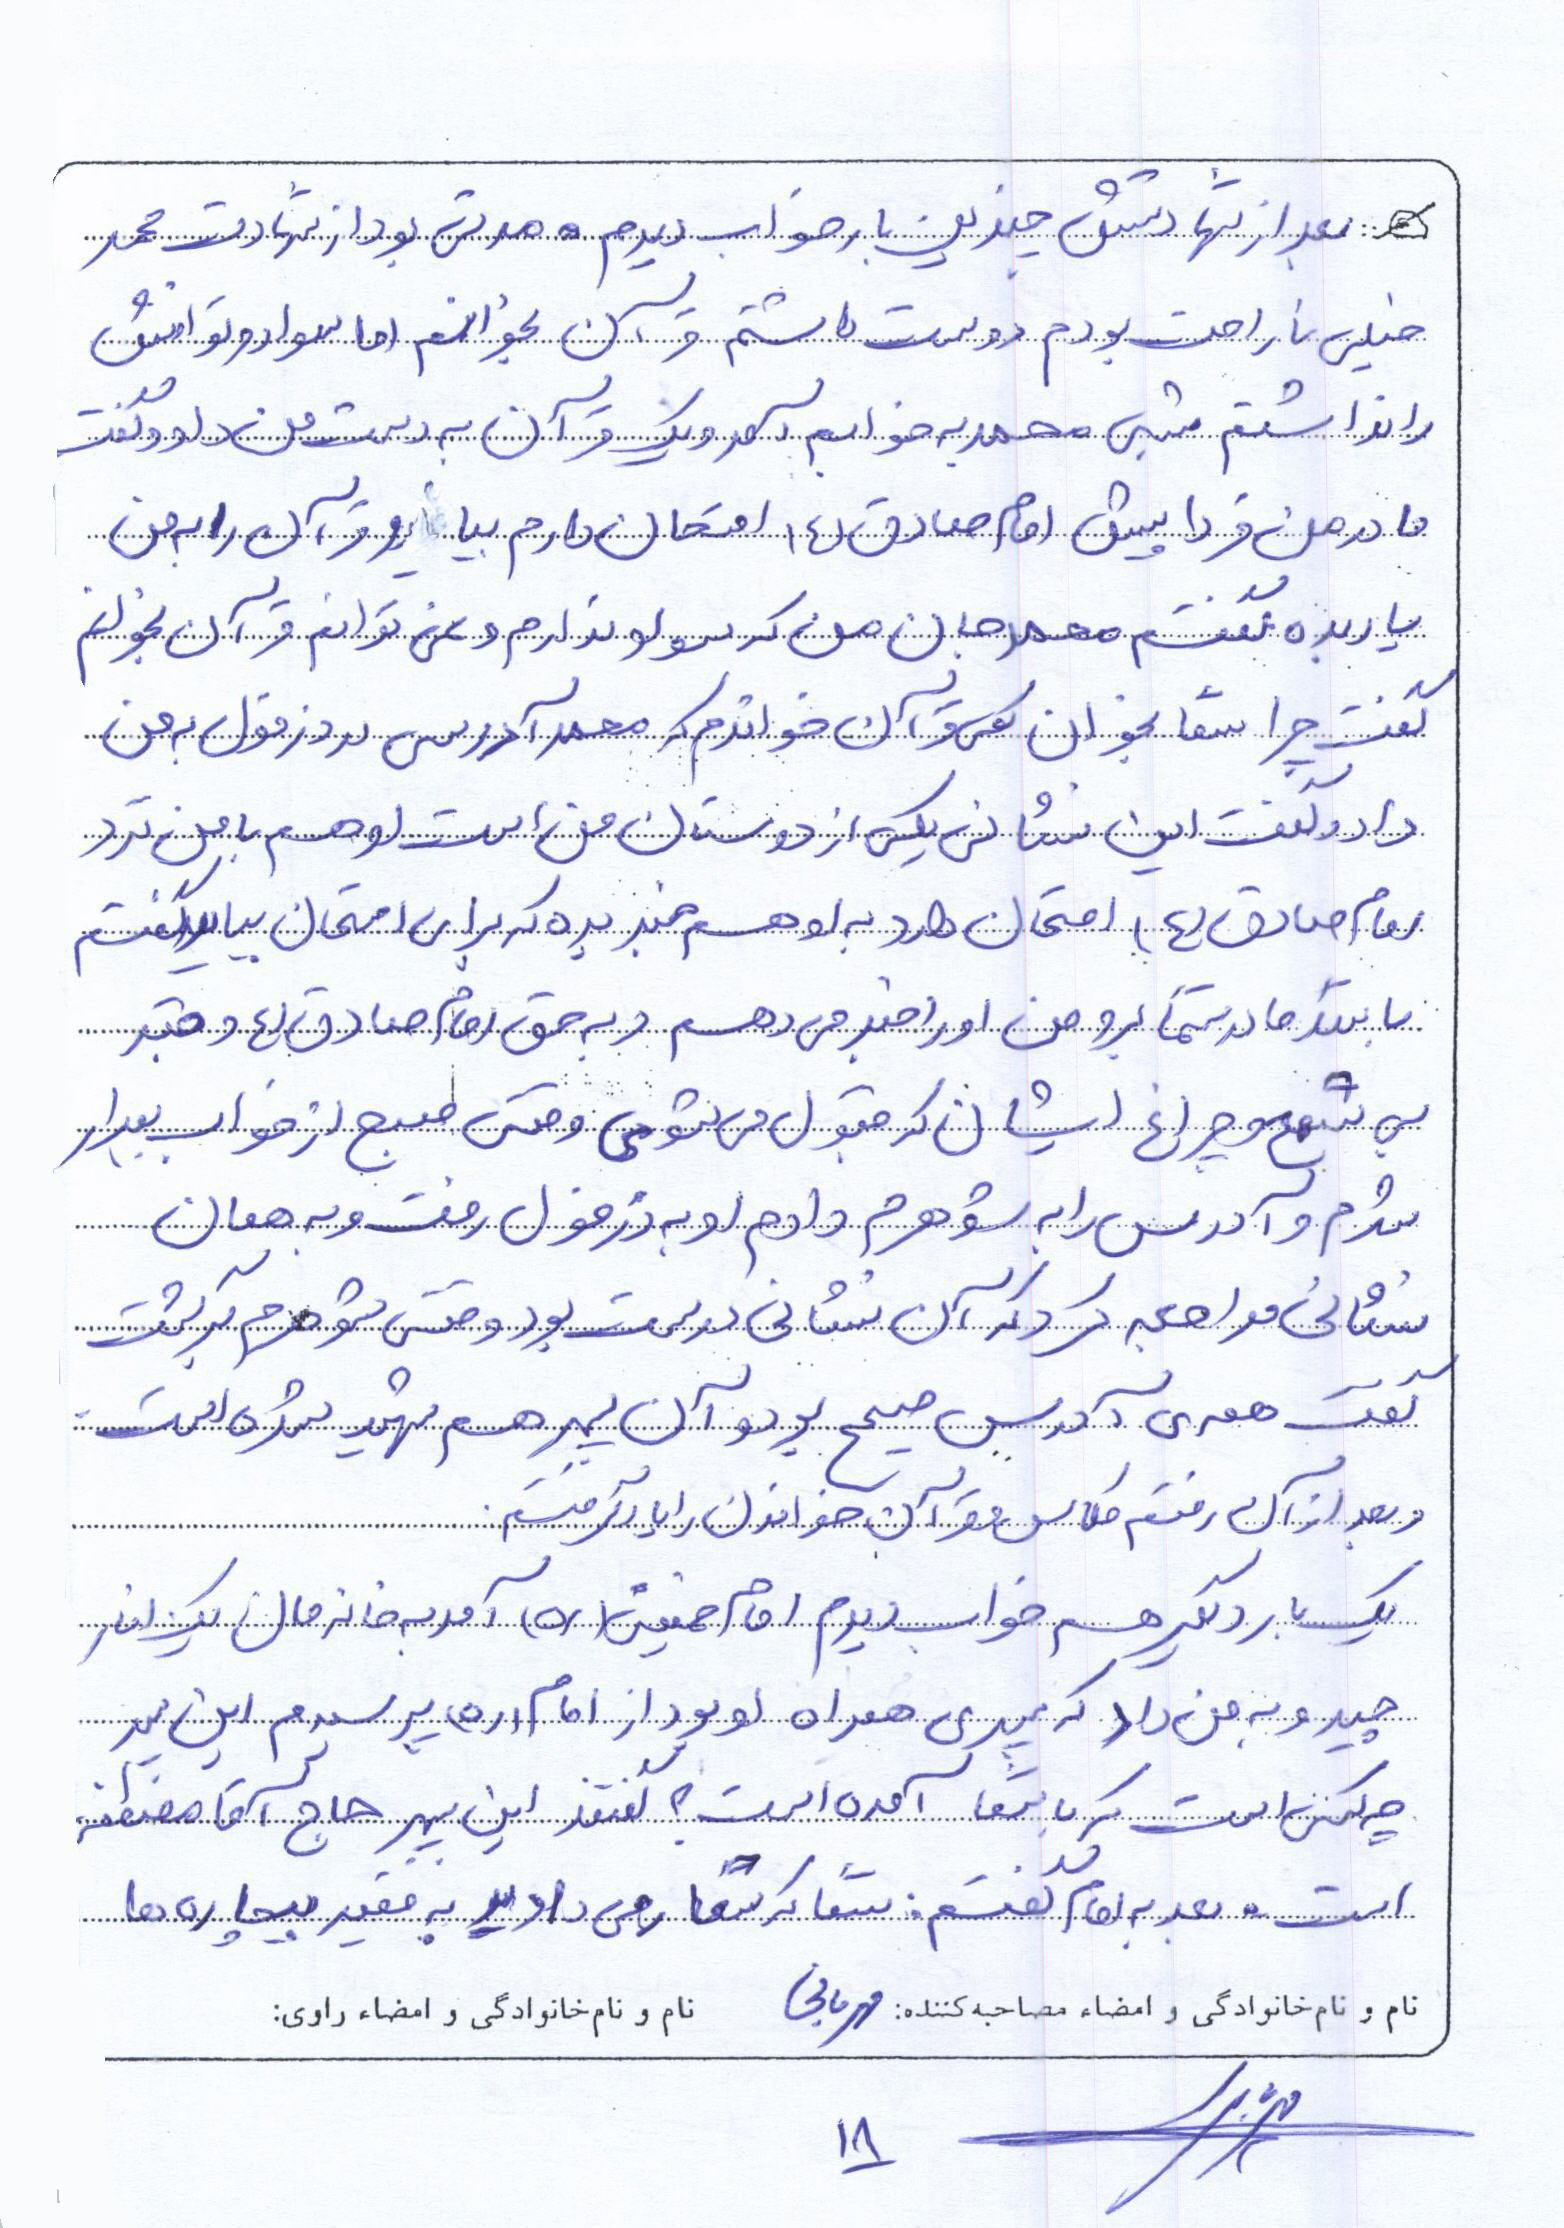 بعد از شهادتش چندین بار خواب دیدم. مدتی بود از شهادت محمد
خیلی ناراحت بودم دوست داشتم قرآن بخوانم اما سواد و توانش
را نداشتم شبی محمد به خوابم آمد و یک قرآن به دست من داد و گفت
مادر من فردا پیش امام صادق (ع) امتحان دارم بیا و قرآن را به من
یاد بده گفتم محمد جان من که سواد ندارم و نمی توانم قرآن بخوانم
گفت چرا شما بخوان کمی قرآن خواندم که محمد آدرسی در دزفول به من
داد و گفت این نشانی یکی از دوستان من است او هم با من نزد
امام صادق (ع) امتحان دارد به او هم خبر بده که برای امتحان بیاید گفتم
باشد مادر شما برو من او را خبر می دهم و به حق امام صادق (ع) و قبر
بی شمع و چراغ ایشان که قبول می شوی وقتی صبح از خواب بیدار
شدم و آدرس را به شوهرم دادم او به دزفول رفت و به همان
نشانی مراجعه کرد که آن نشانی درست بود وقتی شوهرم برگشت
گفت همه ی آدرس صحیح بود و آن پسر هم شهید شده است
و بعد از آن رفتم کلاس و قرآن خواندن را یاد گرفتم.
یک بار دیگر هم خواب دیدم امام خمینی (ره) آمد به خانه مان یک انار
چید و به من داد که پیری همراه او بود از امام (ره) پرسیدم این پیر
چه کسی است که با شما آمده است؟ گفتند این پیر حاج آقا مصطفی
است. بعد به امام گفتم: شما که شفا می دادید به فقیر بیچاره ها
نام و نام خانوادگی و امضاء مصاحبه کننده: مهربانی نام و نام خانوادگی و امضاء راوی:
۱۸